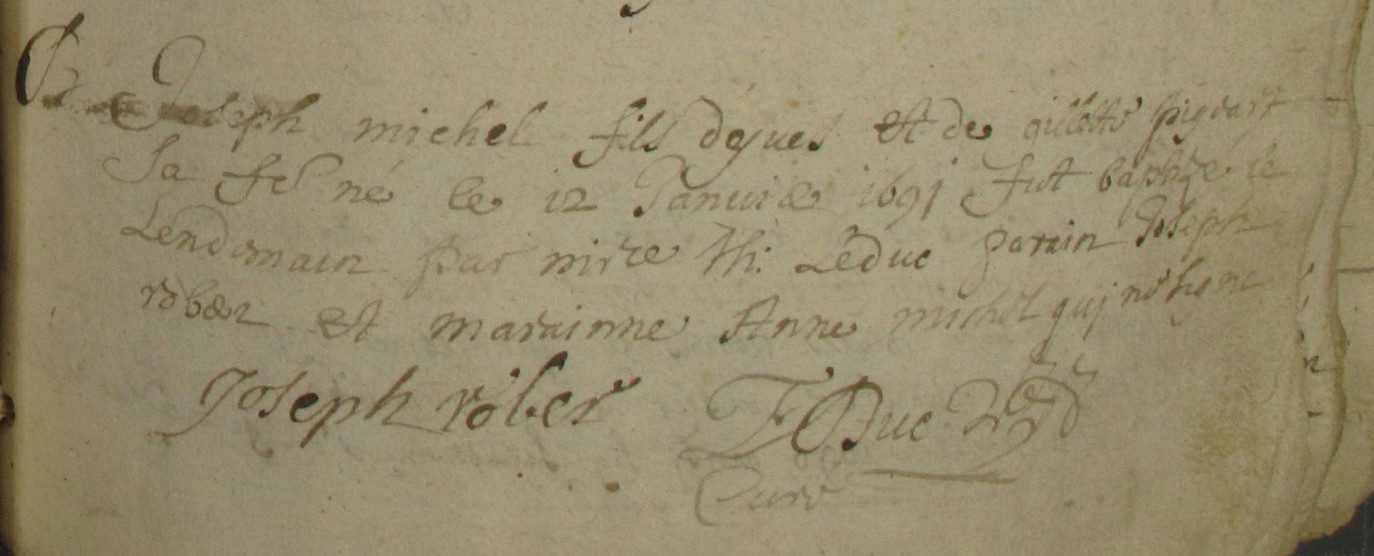 B Joseph michel fils dyves et de gillette pigeart
Sa fe né le 12 Janvié 1691 fut baptize le
Lendemain par mire Th. Leduc parain Joseph
rober et marainne Anne michel quj ne signe
Joseph rober T Duc
Curé